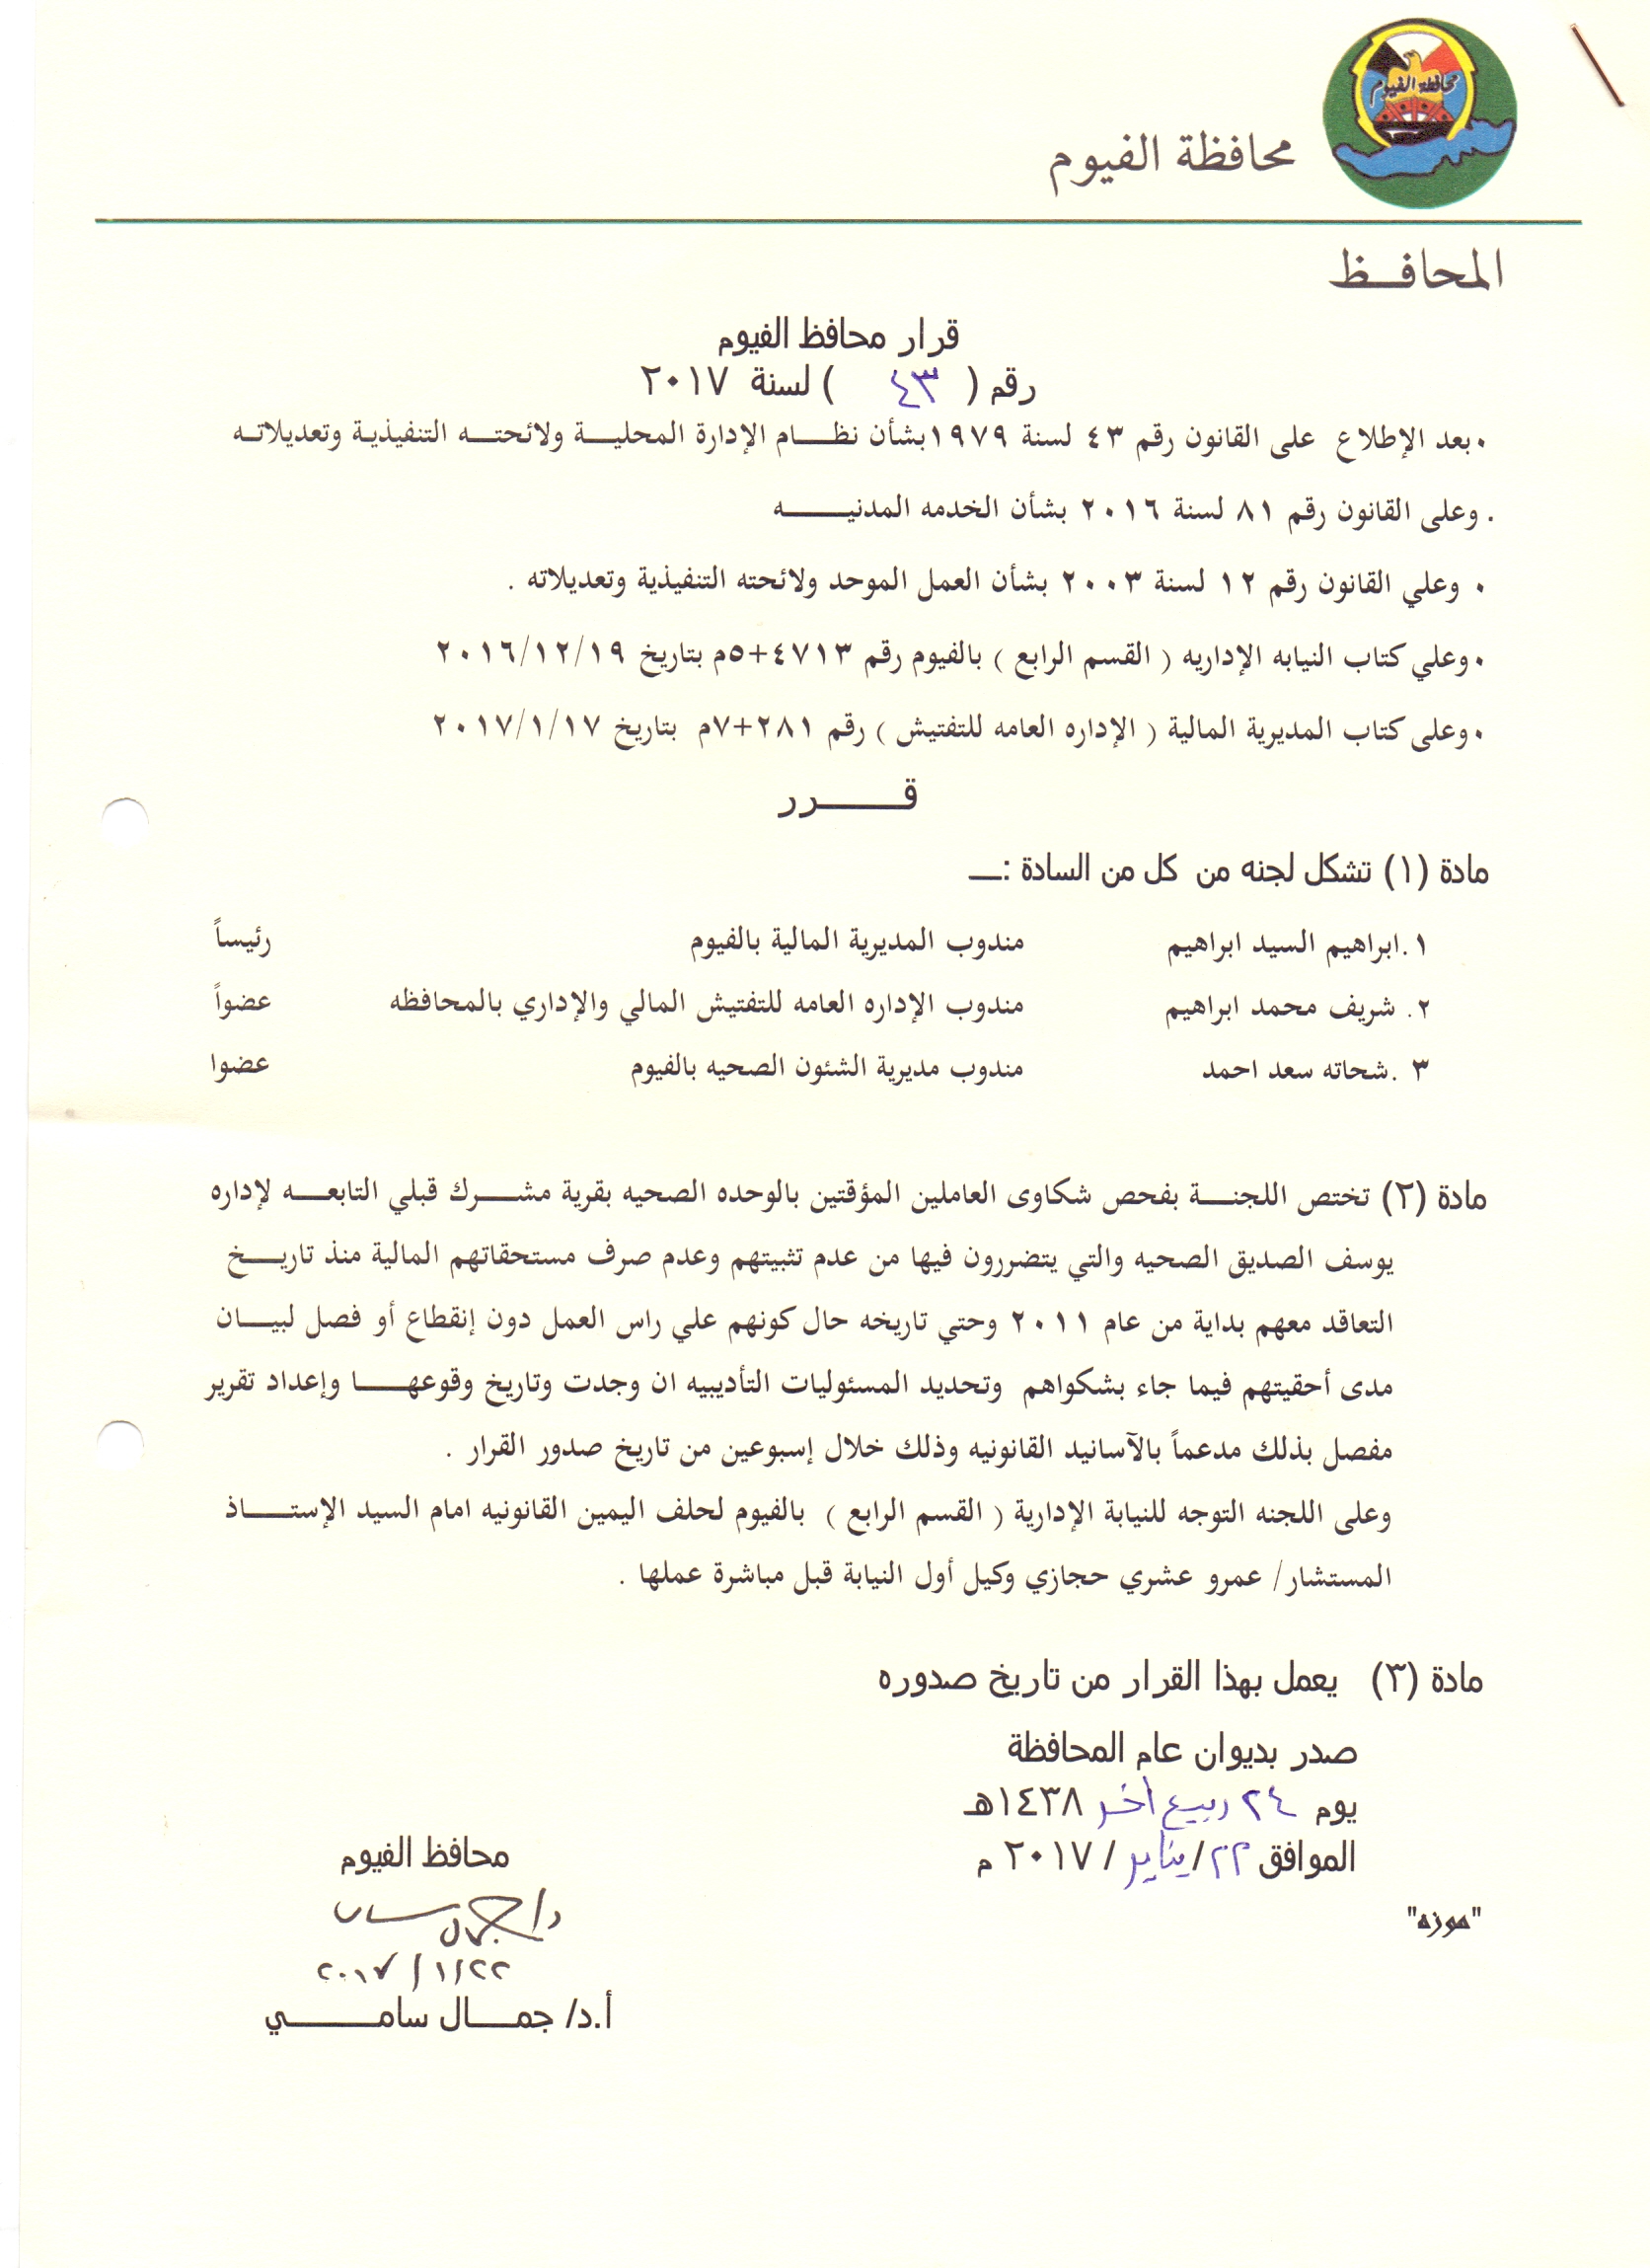 محافظة الفيوم
محافظة الفيوم
المحافــظ
قرار محافظ الفيوم
رقم ( ٤٣ ) لسنة ٢٠١٧
٠ بعد الإطلاع على القانون رقم ٤٣ لسنة ١٩٧٩بشأن نظـــام الإدارة المحليـــة ولائحتـــه التنفيذيـة وتعديلاتـه
. وعلى القانون رقم ٨١ لسنة ٢٠١٦ بشأن الخدمه المدنيـــــــه
٠ وعلي القانون رقم ١٢ لسنة ٢٠٠٣ بشأن العمل الموحد ولائحته التنفيذية وتعديلاته .
٠ وعلي كتاب النيابه الإداريه ( القسم الرابع ) بالفيوم رقم ٤٧١٣+٥م بتاريخ ٢٠١٦/١٢/١٩
٠ وعلى كتاب المديرية المالية ( الإداره العامه للتفتيش ) رقم ٢٨١+٧م بتاريخ ٢٠١٧/١/١٧
قـــــــرر
مادة (١) تشكل لجنه من كل من السادة :ـــ
١.ابراهيم السيد ابراهيم مندوب المديرية المالية بالفيوم رئيساً
٢. شريف محمد ابراهيم مندوب الإداره العامه للتفتيش المالي والإداري بالمحافظه عضواً
٣ .شحاته سعد احمد مندوب مديرية الشئون الصحيه بالفيوم عضوا
مادة (٢) تختص اللجنـــة بفحص شكاوى العاملين المؤقتين بالوحده الصحيه بقرية مشـــرك قبلي التابعـــه لإداره
يوسف الصديق الصحيه والتي يتضررون فيها من عدم تثبيتهم وعدم صرف مستحقاتهم المالية منذ تاريـــخ
التعاقد معهم بداية من عام ٢٠١١ وحتي تاريخه حال كونهم علي راس العمل دون إنقطاع أو فصل لبيـــان
مدى أحقيتهم فيما جاء بشكواهم وتحديد المسئوليات التأديبيه ان وجدت وتاريخ وقوعهـــــا وإعداد تقرير
مفصل بذلك مدعماً بالآسانيد القانونيه وذلك خلال إسبوعين من تاريخ صدور القرار .
وعلى اللجنه التوجه للنيابة الإدارية ( القسم الرابع ) بالفيوم لحلف اليمين القانونيه امام السيد الإستـــــاذ
المستشار/ عمرو عشري حجازي وكيل أول النيابة قبل مباشرة عملها .
مادة (٣) يعمل بهذا القرار من تاريخ صدوره
صدر بديوان عام المحافظة
يوم ٢٤ ربيع اخر ١٤٣٨هـ
الموافق ٢٢/ يناير / ٢٠١٧ م
محافظ الفيوم
"موزه"
د/ جمال سامى
٢٠١٧/١/٢٢
أ.د/ جمـــــال سامـــــــــي